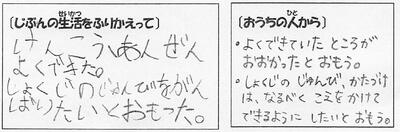 〔じぶんの生活をふりかえって〕
せいかつ
けんこうあんぜん
よくできた。
しょくじのじゅんびをがん
ばりたいとおもった。
〔おうちの人から〕
ひと
・よくできていた ところが
おおかったと おもう。
・しょくじの じゅんび、かたづけ
は、なるべく こえをかけて
できるように したいと おもう。